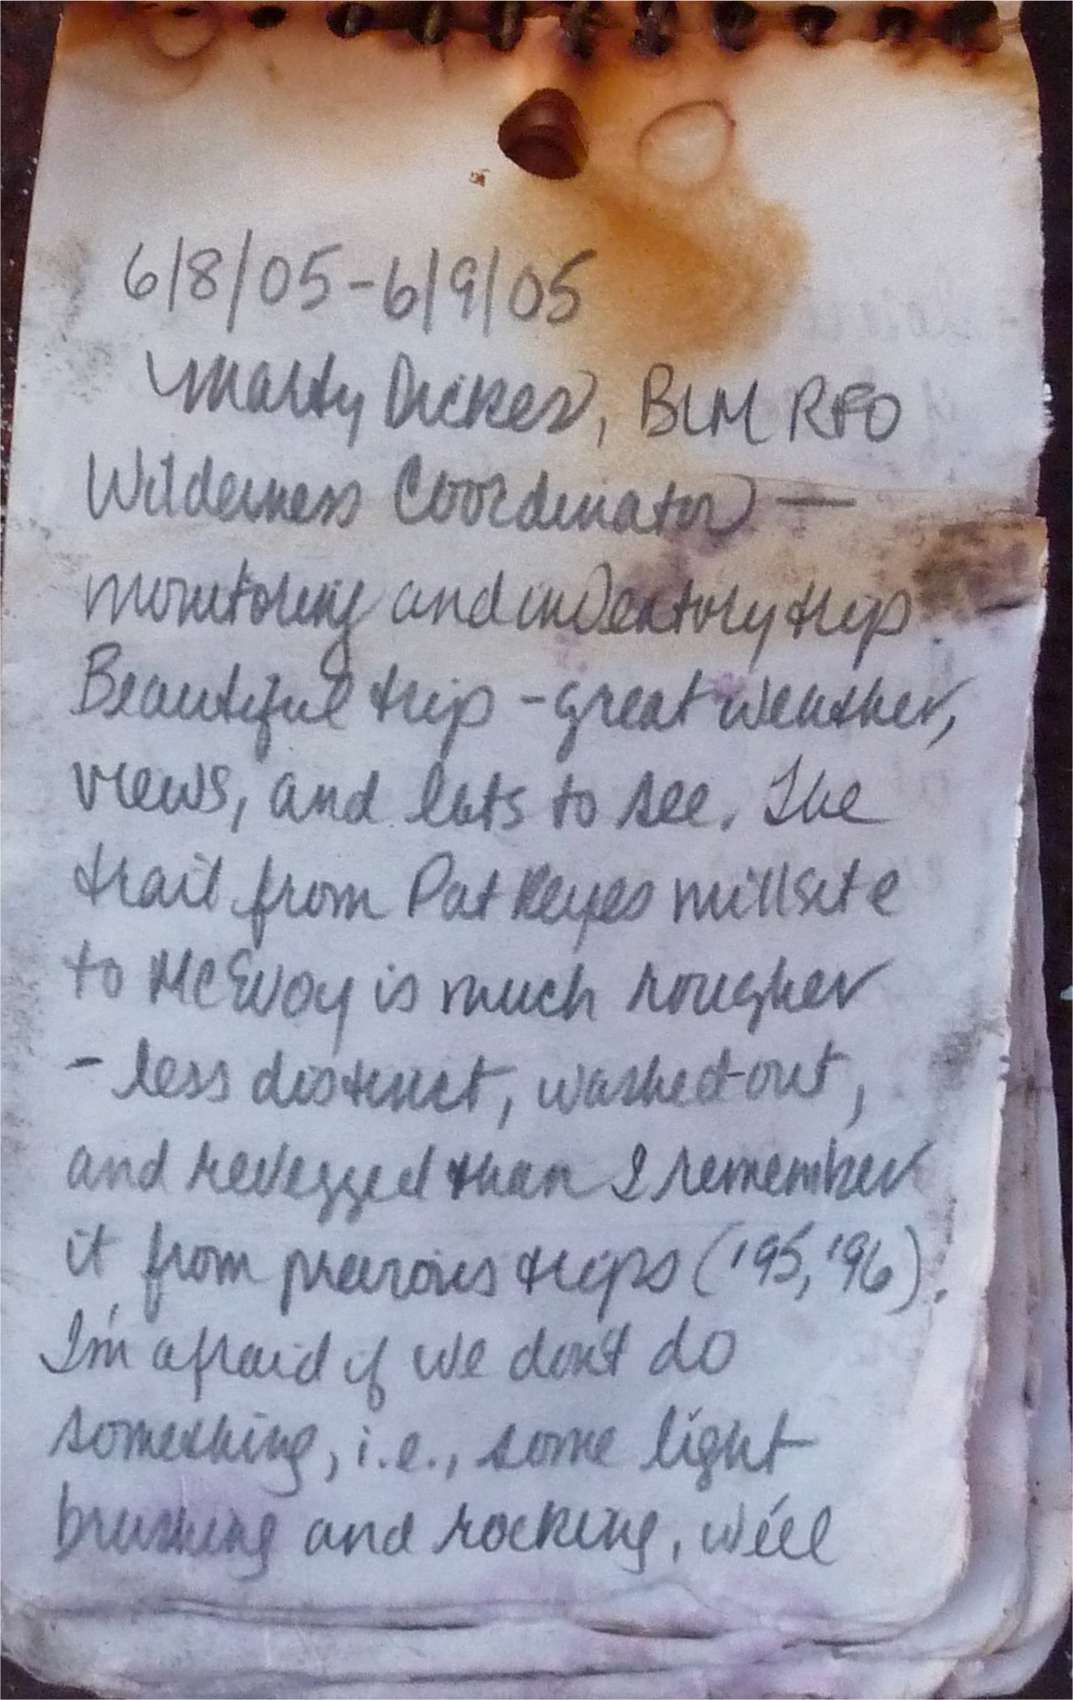 6/8/05-6/9/05
Marty Dickes, BLM RFO
Wilderness Coordinator —
monitoring and inventory trip
Beautiful trip - great weather,
views, and lots to see. The
trail from Pat Keyes millsite
to McEvoy is much rougher
- less distinct, washed-out,
and revegged than I remember
it from previous trips ('95, '96).
I'm afraid if we don't do
something, i.e., some light
brushing and rocking, we'll